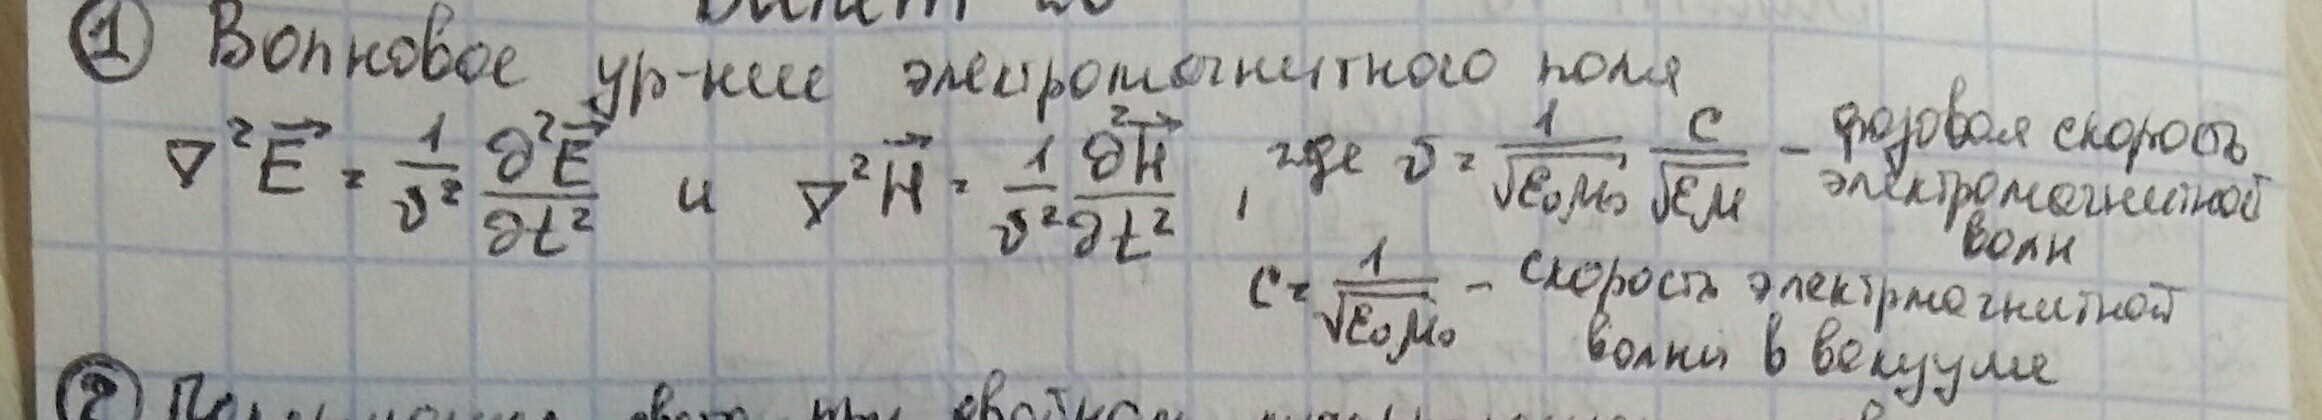 Билет 20
① Волновое ур-ние электромагнитного поля
∇²E⃗ = 1/υ² ∂²E⃗/∂t² и ∇²H⃗ = 1/υ² ∂²H⃗/∂t² , где υ = 1/√ε₀μ₀ c/√εμ – фазовая скорость
электромагнитной
волн
c = 1/√ε₀μ₀ – скорость электрмагнитной
волны в вакууме
②